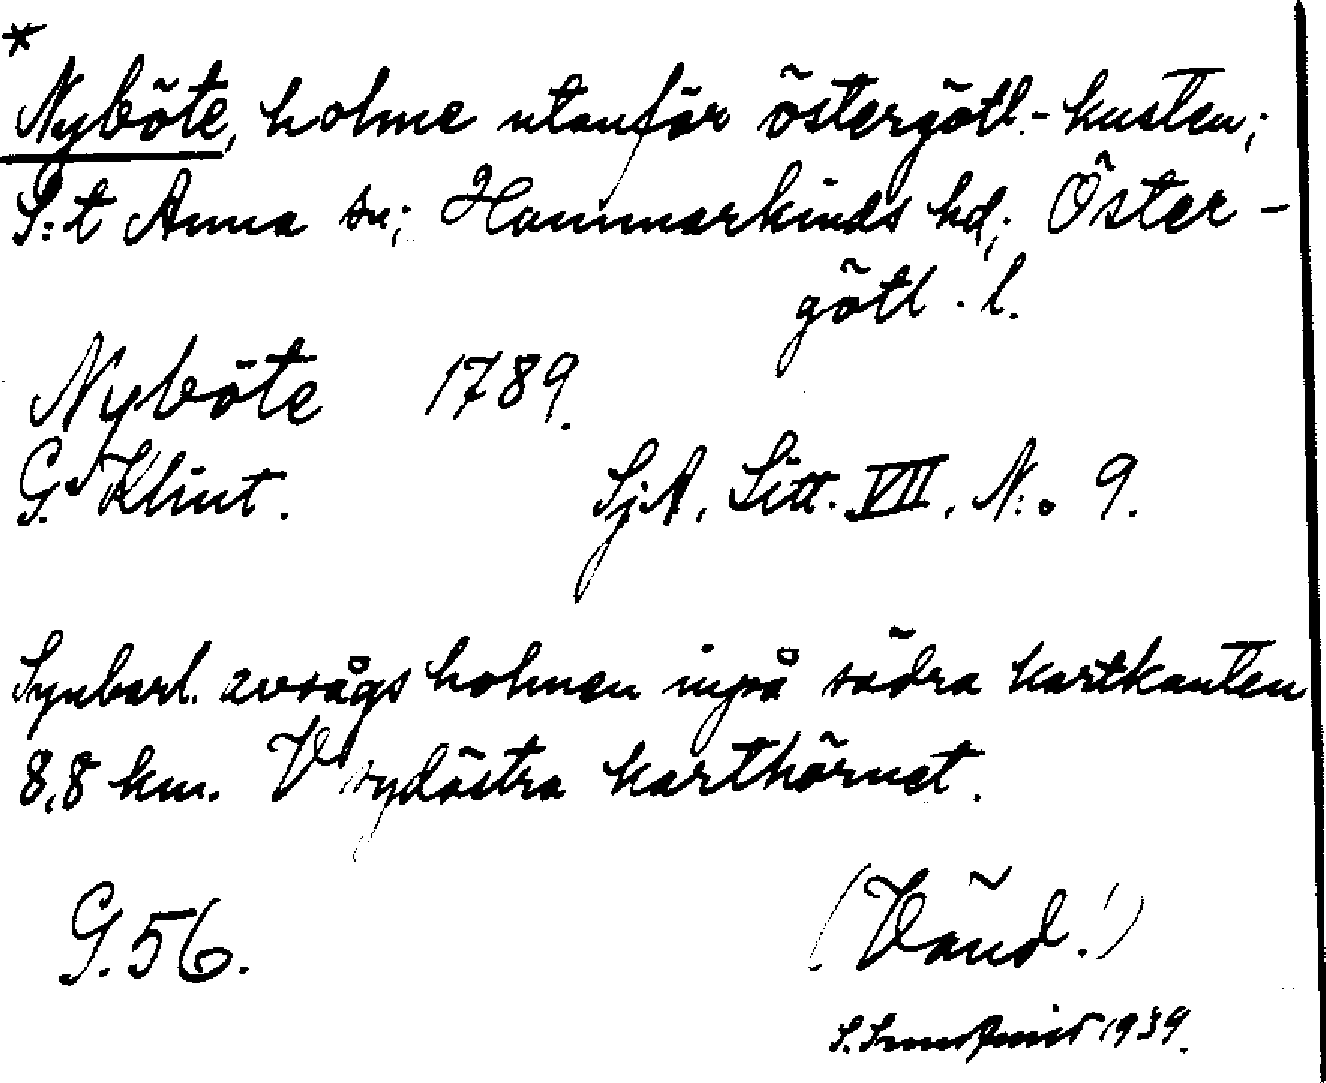 *
Nyböte, holme utanför östergötl.-kusten;
S:t Anna sn; Hammarkinds hd; Öster-
götl. l.
Nyböte 1789.
G. Klint. SjA, Litt. VII, N:o 9.
Synbarl. avsågs holmen inpå södra kartkanten
8,8 km. V sydöstra karthörnet.
G. 56. (Vänd!)
S. 1939.